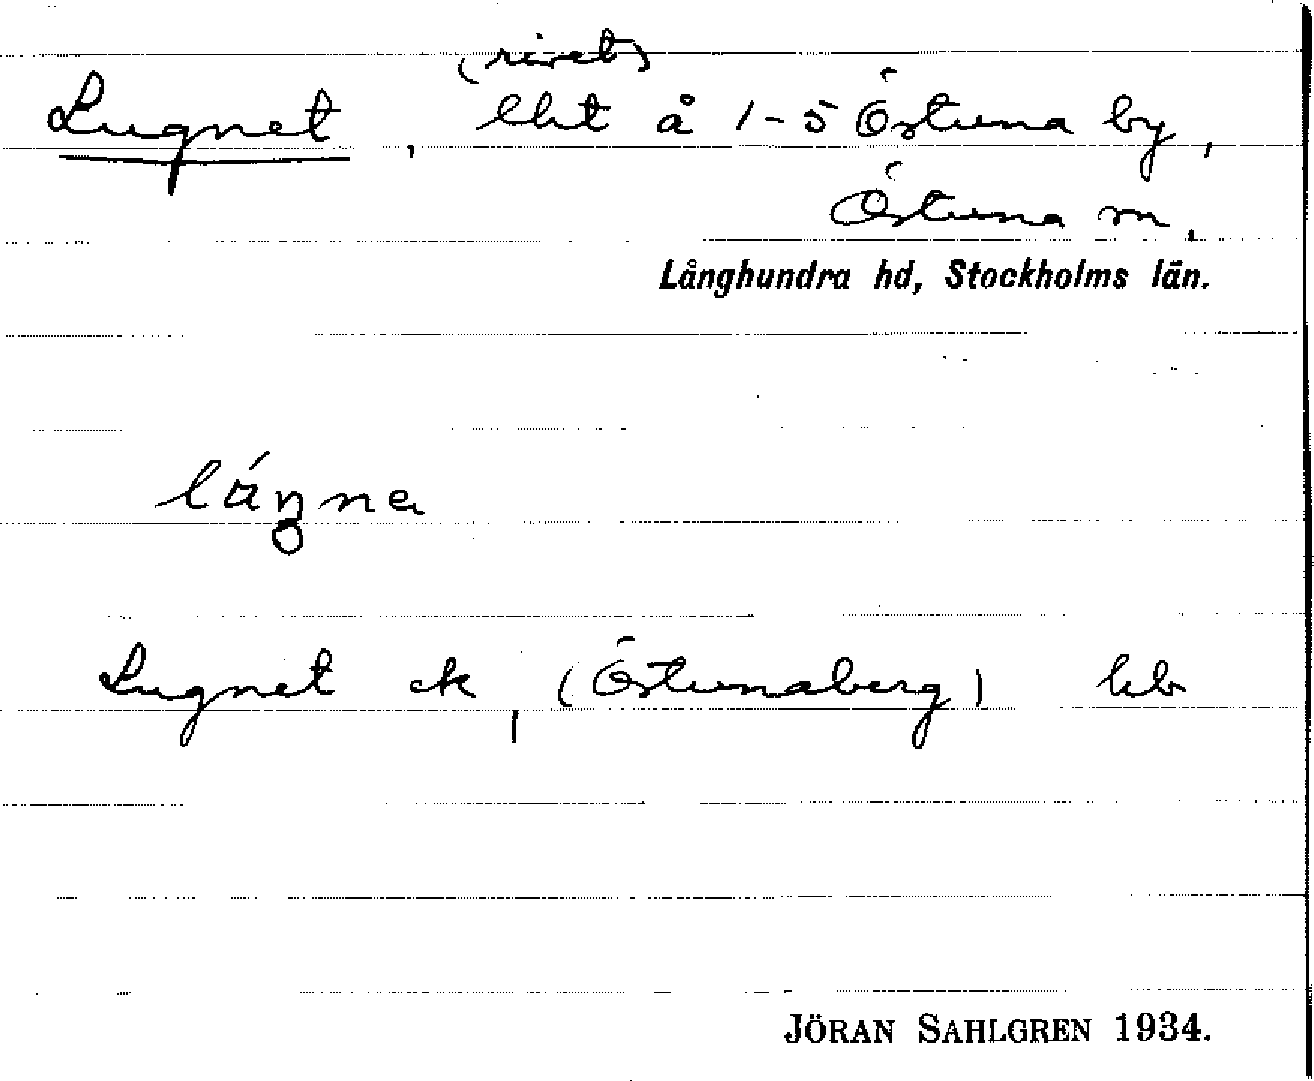 (rivet)
Lugnet, lht å 1-5 Östuna by,
Östuna sn.
Långhundra hd, Stockholms län.
Lugnet ek, (Östunaberg) hb
JÖRAN SAHLGREN 1934.